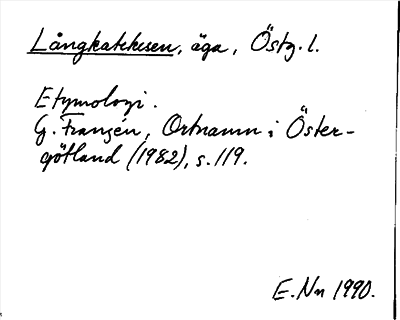 Långkatekesen, äga, Östg. l.
Etymologi.
G. Franzén, Ortnamn i Öster-
götland (1982), s. 119.
E. Nn 1990.